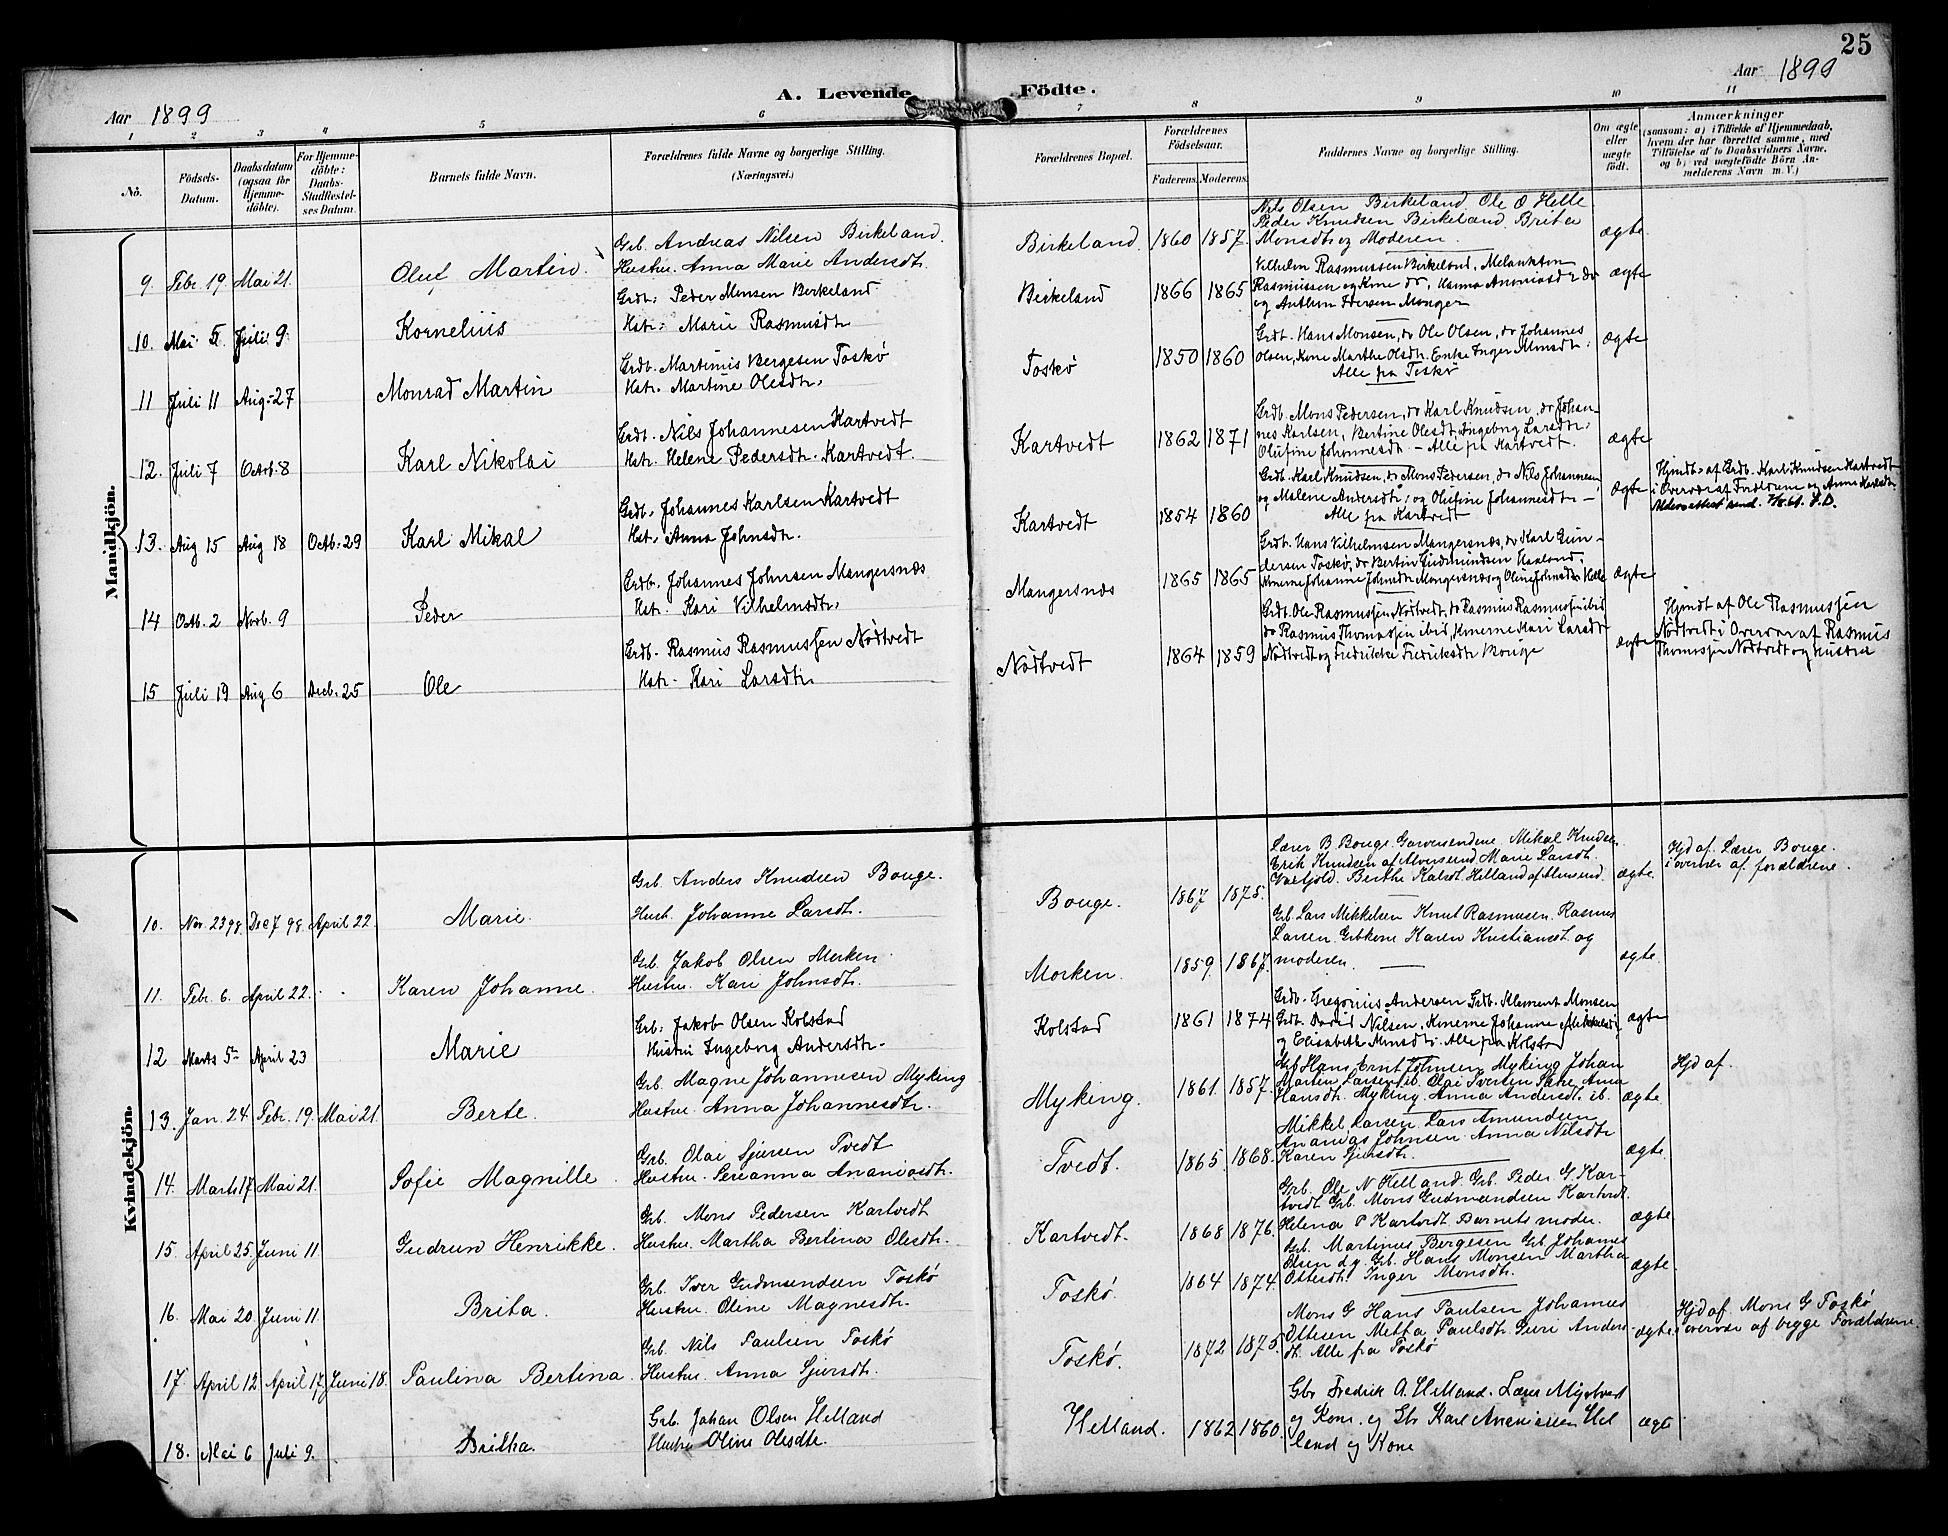 25
Aar 1899
A. Levende Födte.
Aar 1899
1 2 3 4 5 6 7 8 9 10 11
No.
Födsels-Datum.
Daabsdatum (ogsaa for Hjemmedöbte).
For Hjemmedöbte: Daabs-Stadfæstelses Datum.
Barnets fulde Navn.
Forældrenes fulde Navne og borgerlige Stilling. (Næringsvei.)
Forældrenes Bopæl.
Forældrenes Födselsaar.
Faderens. Moderens.
Faddernes Navne og borgerlige Stilling.
Om ægte eller uægte födt.
Anmærkninger
(saasom: a) i Tilfælde af Hjemmedaab, hvem der har forrettet samme, med Tilföielse af to Daabsvidners Navne, og b) ved uægtefödte Börn Anmelderens Navn m. V.)
Mandkjön.
9 Febr. 19 Mai 21. Oluf Martin.
Grb. Andreas Nilsen Birkeland.
Hustru. Anna Marie Andersdtr.
Birkeland. 1860 1857.
Nils Olsen Birkeland. Ole O Helle
Peder Knudsen Birkeland. Brita
Monsdtr og Moderen.
ægte
10. Mai 5 Juli 9. Kornelius
Grdt. Peder Monsen Birkeland
Hstr. Marie Rasmusdtr
Birkeland 1866 1865
Vilhelm Rasmussen Birkeland, Melankton
Rasmussen og Kone do, Hanna Ananiasdtr do
og Anthon Iversen Manger
ægte
11 Juli 11 Aug. 27 Monrad Martin
Grdb. Martinus Bergesen Toskø
Hst. Martine Olesdtr.
Toskø 1850 1860
Grdt. Hans Monsen, do Ole Olsen, do Johannes
Olsen, Kone Marthe Olsdtr. Enke Inger Monsdtr.
Alle fra Toskø
ægte
12. Juli 7 Octb. 8 Karl Nikolai
Grdt. Nils Johannesen Kartvedt
Hst. Helene Pedersdtr. Kartvedt.
Kartvedt 1862 1871
Grdb. Mons Pedersen, do Karl Knudsen, do Johannes
Karlsen, Bertine Olesdt, Ingeborg Larsdtr,
Olufine Johannesdtr - Alle fra Kartvedt.
ægte
13. Aug 15 Aug 18 Octb. 29 Karl Mikal
Grdb. Johannes Karlsen Kartvedt
Hst. Anna Johnsdtr.
Kartvedt 1854 1860
Grdb. Karl Knudsen, do Mons Pedersen, do Nils Johannesen,
og Malene Andersdtr, og Olufine Johannesdtr -
Alle fra Kartvedt
ægte
Hjmdt. af Grdb. Karl Knudsen Kartvedt
i Overvær af Forældrene og Anna Karlsdtr.
14 Octb. 2 Novb. 9 Peder
Grdb. Johannes Johnsen Mangersnæs
Hst. Kari Vilhelmsdtr.
Mangersnæs 1865 1865
Grdb. Hans Vilhelmsen Mangersnæs, do Karl Gundersen
Toskø, do Bertin Gudmundsen Haaland,
Konerne Johanne Johnsdtr Mangersnæs og Oline Johnsdtr Helle
ægte
15 Juli 19 Aug 6 Decb. 25 Ole
Grdb. Rasmus Rasmussen Nødtvedt
Hst. Kari Larsdtr
Nødtvedt 1864 1859
Grdt. Ole Rasmussen Nødtvedt, do Rasmus Rasmussen ibid
do Rasmus Thomassen ibid, Konerne Kari Larsdtr
Nødtvedt og Fredrikke Fredriksdtr Bouge
ægte
Hjmdt af Ole Rasmussen
Nødtvedt i Overvær af Rasmus
Thomassen Nødtvedt og Hustru
Kvindekjön.
10. Nov. 23 98. Dec 7 98. April 22. Marie.
Grb. Anders Knudsen Bouge.
Hust. Johanne Larsdt.
Bouge. 1867 1875.
Lærer B Bouge. Mikal Knudsen
Erik Knudsen af Alversund Marie Larsdt.
Berthe Helland af Alversund.
ægte.
Hjd af. Lærer Bouge.
i overvær af. forældrene.
11. Febr. 6. April 22. Karen Johanne.
Grb. Jakob Olsen Morken.
Hustru. Kari Johnsdtr.
Morken. 1859 1867.
Grb Lars Mikkelsen Knut Rasmusen. Rasmus
Larsen. Grbkone Karen Kristiansdt. og
moderen.
ægte.
12 Marts 5 April 23 Marie
Grb. Jakob Olsen Kolstad
Hustru Ingeborg Andersdtr.
Kolstad 1861 1874
Grdb. Gregorius Andersen Grdb. Klement Monsen
Grdt. David Nilsen, Konerne Johanne Mikkelsd,
og Elisabeth Monsdt. Alle fra Kolstad
ægte
13. Jan. 24 Febr. 19. Mai 21. Berte.
Grb. Magne Johannesen Myking
Hustru. Anna Johannesdtr.
Myking. 1861 1857.
Grb Hans Arnt Johnsen Myking Johan
Marten Larsen ib. Olai Iversen Sætre. Anna
Hansdt. Myking. Anna Andersdt. ib.
ægte.
Hjd af.
14. Marts 17 Mai 21. Sofie Magnille.
Grb. Olai Sjursen Tvedt
Hustru. Serianna Ananiasdtr.
Tvedt. 1865. 1868.
Mikkel Larsen. Lars Amundsen
Ananias Johnsen. Anna Nilsdtr
Karen Sjursdt.
ægte.
15. April 25. Juni 11. Gudrun Henrikke.
Grb. Mons Pedersen Kartvedt
Hustru. Martha Bertina Olesdtr.
Kartvedt. 1868 1876.
Grb. Ole N Helland. Grb. Peder G. Kartvedt
Grb. Mons Gudmundsen Kartvedt.
Helena P Kartvedt. Barnets moder.
ægte
16. Mai 20. Juni 11. Brita.
Grb. Iver Gudmundsen Toskø
Hustru. Oline Magnesdtr.
Toskø. 1864 1874.
Grb. Martinus Bergesen Grb Johannes
Olsen d.y. Grb. Hans Monsen Martha
Ottesdt. Inger Monsdt.
ægte.
17. April 12 April 17. Juni 18. Paulina Bertina.
Grb. Nils Paulsen Toskø
Hustru. Anna Sjursdt.
Toskø. 1842 1875.
Mons G Hans Paulsen Johannes
Ottesen Metta Paulsdt. Guri Andersdt.
Alle fra Toskø
ægte
Hjd af. Mons G Toskø
i overvær af begge Forældrene.
18. Mai 6 Juli 9. Britha.
Grb. Johan Olsen Helland
Hustru Oline Olesdtr.
Helland. 1862 1860.
Gbr Fredrik A. Helland. Lærer Mjøtvedt
og Kone. og Gbr Karl Ananiassen Helland
og Kone
ægte